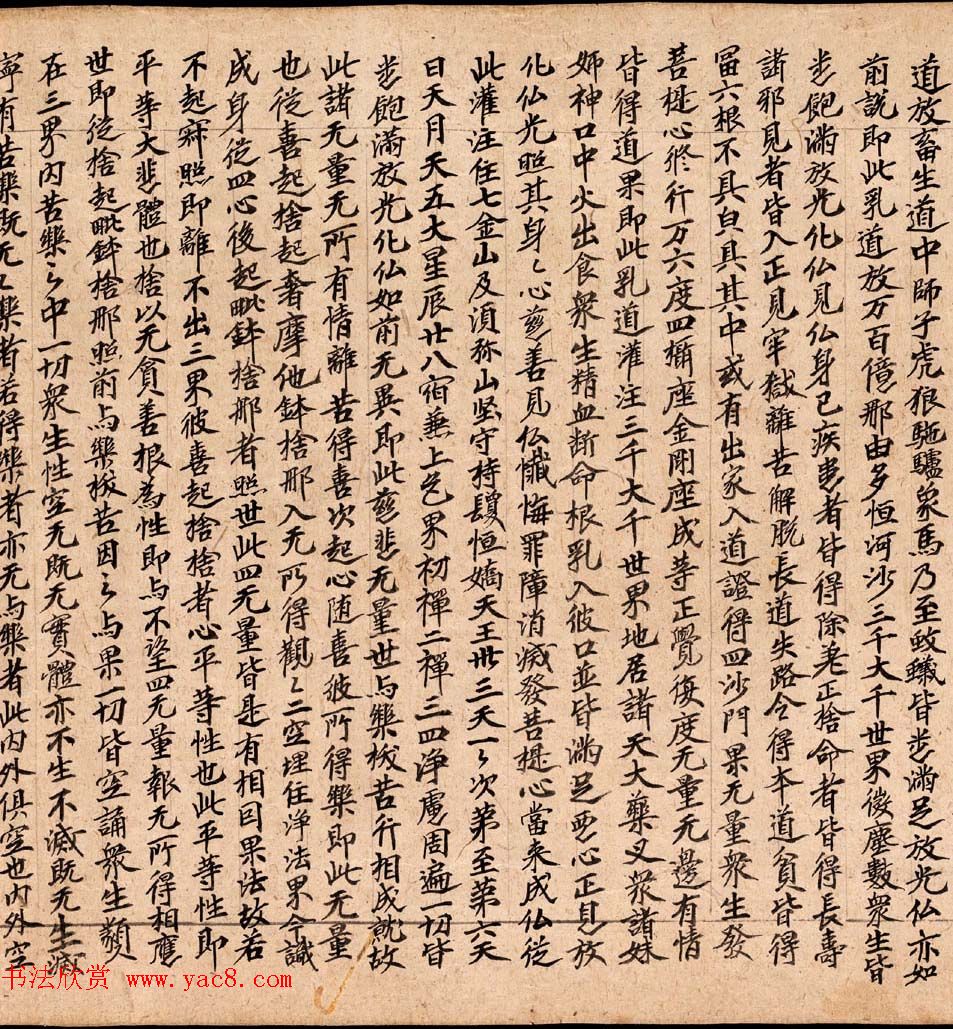 道放畜生道中師子虎狼駞驢象馬乃至蚊蟻皆悉滿足放光仏亦如
前說即此乳道放万百億那由多恒河沙三千大千世界微塵數衆生皆
悉飽滿放光化仏見仏身已疾患者皆得除差正捨命者皆得長壽
諸邪見者皆入正見牢獄離苦解脫長道失路令得本道貧皆得
冨六根不具自具其中或有出家入道證得四沙門果无量衆生發
菩提心終行万六度四攝座金剛座成等正覺復度无量无邊有情
皆得道果即此乳道灌注三千大千世界地居諸天大藥叉衆諸妹
姊神口中火出食衆生精血断命根乳入彼口並皆滿足惡心正息放
化仏光照其身〻心慈善見仏懺悔罪障消滅發菩提心當来成仏從
此灌注住七金山及湏弥山坚守持鬘恒嬌天王丗三天一〻次第至第六天
日天月天五大星辰廿八宿兼上色界初禪二禪三四浄慮周遍一切皆
悉飽滿放光化仏如前无異即此慈悲无量世与樂拔苦行相成就故
此諸无量无所有情離苦得喜次起心随喜彼所得樂即此无量
也從喜起捨起奢摩他鉢捨那入无所得觀〻二空理住浄法界今識
成身從四心後起毗鉢捨那者照世此四无量皆是有相因果法故若
不起寂照即離不出三界彼喜起捨捨者心平等性也此平等性即
平等大悲體也捨以无貪善根為性即与不望四无量報无所得相應
世即從捨起毗鉢捨那照前与樂拔苦因之与果一切皆空誦衆生類
在三界内苦樂之中一切衆生性空无既无實體亦不生不滅既无生滅
寧有苦樂既无〻樂者若得樂者亦无与樂者此内外俱空也内外空
书法欣赏 www.yac8.com